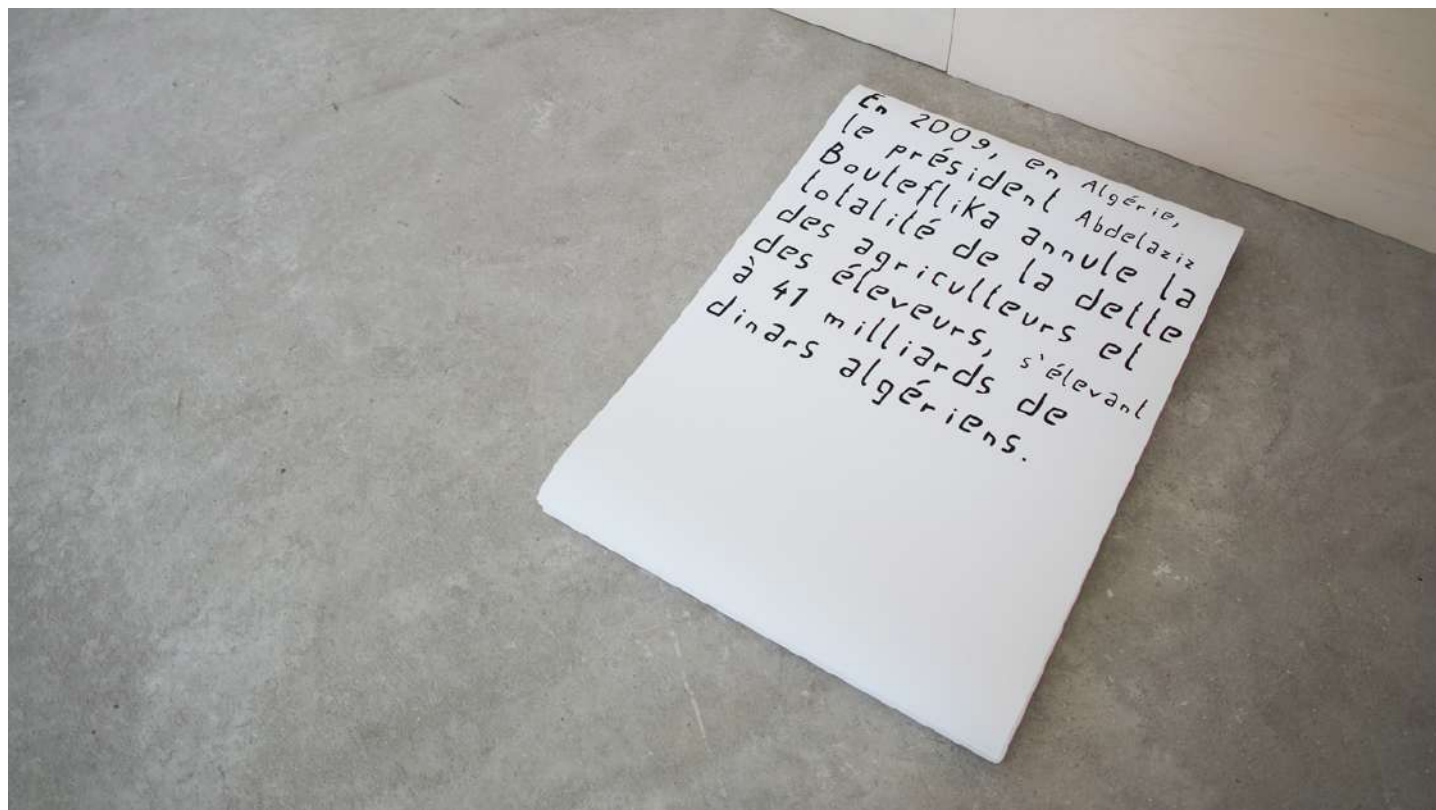 En 2009, en Algérie,
le président Abdelaziz
Bouteflika annule la
totalité de la dette
des agriculteurs et
des éleveurs, s'élevant
à 41 milliards de
dinars algériens.